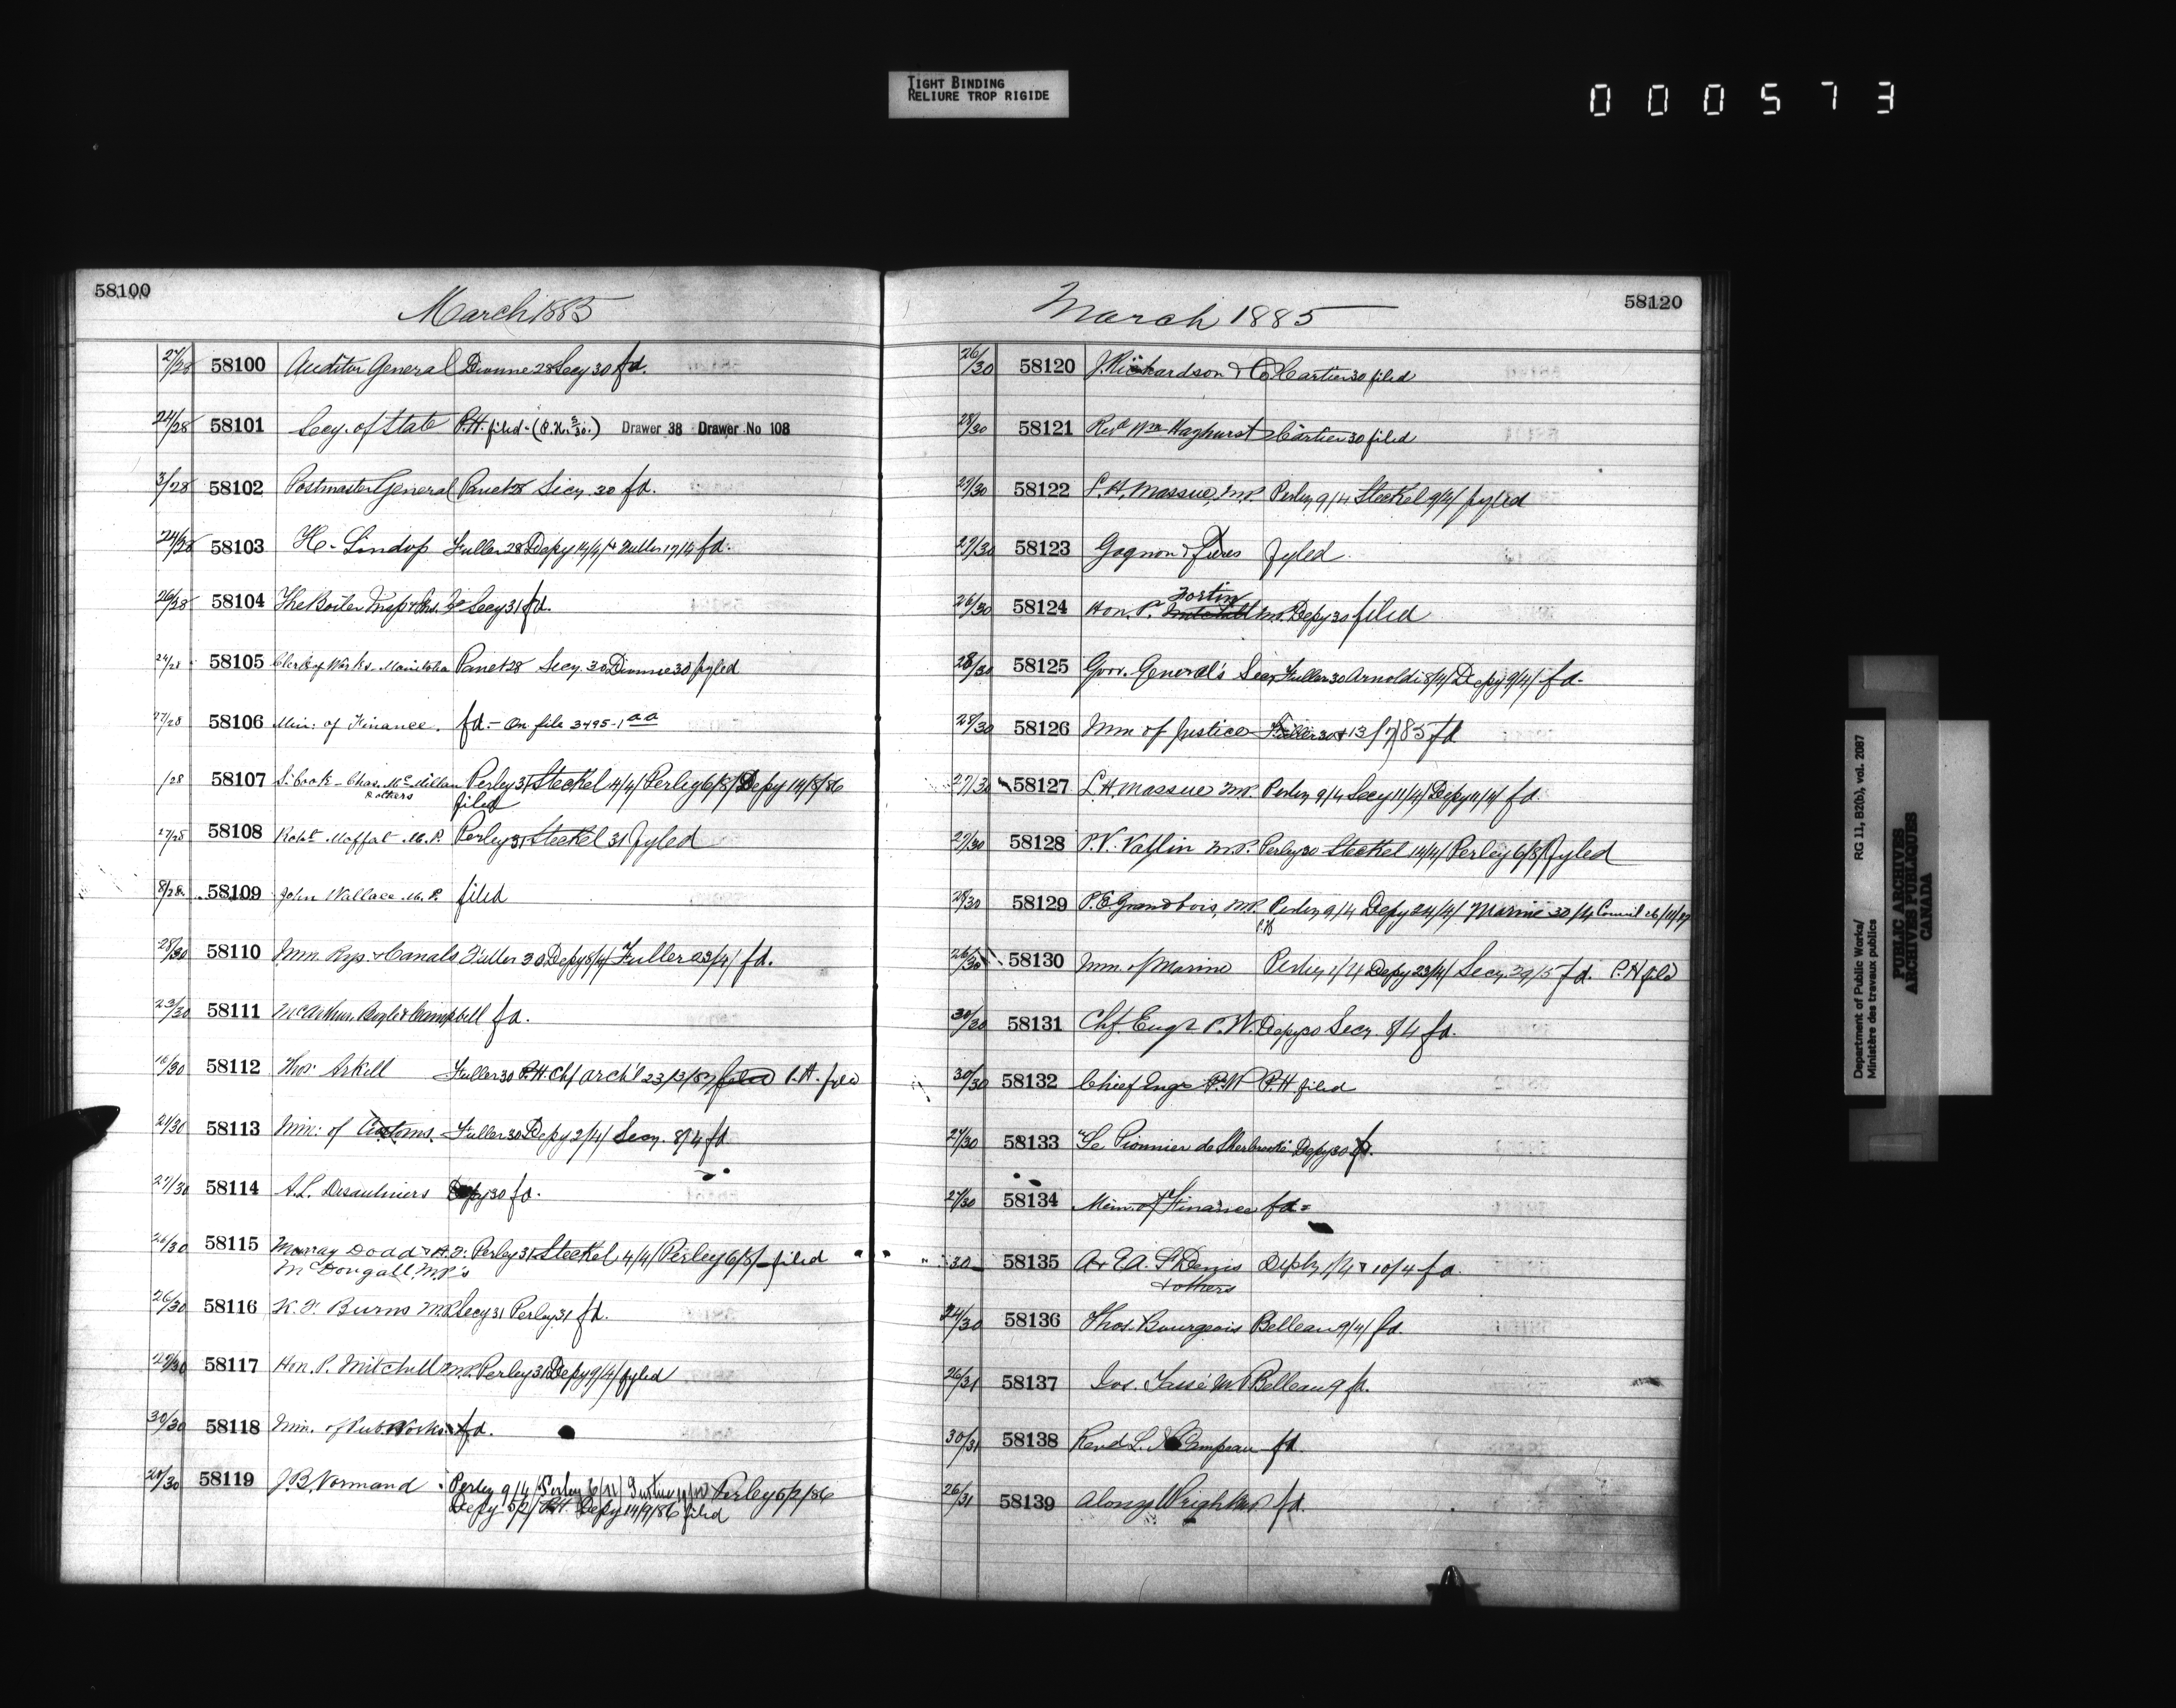 TIGHT BINDING
RELIURE TROP RIGIDE
000573
58100
March 1885
27/28 58100 Auditor General Dionne 28 Secy 30 fd.
24/28 58101 Secy. of State P.H. filed - Drawer 38 Drawer No 108
3/28 58102 Postmaster General Panet 28 Secy 30 fd.
24/28 58103 H. Lindop Fuller 28 Depy 14/4/ Fuller 17/4 fd.
26/28 58104 The Boiler Insp & Ins. Co Secy 31 fd.
24/28 58105 Clerk of Works. Manitoba Panet 28 Secy 30 Dionne 30 fyled
27/28 58106 Min: of Finance. fd. - On file 3495-1 aa
/28 58107 S. Cook - Chas. McMillan Perley 31 Steckel 14/4/ Perley 6/8/ Depy 14/8/86
& others filed
27/28 58108 Robt. Moffat M.P. Perley 31 Steckel 31 fyled
8/28 58109 John Wallace M.P. filed
28/30 58110 Min. Rys. & Canals Fuller 30 Depy 8/4/ Fuller 23/4/ fd.
23/30 58111 McArthur, Bogle & Campbell fd.
16/30 58112 Thos. Arkell Fuller 30 P.H Chf Arch't 23/3/87 filed P.H. filed
21/30 58113 Min: of Customs. Fuller 30 Depy 2/4/ Secy. 8/4 fd
27/30 58114 A.L. Desaulniers Depy 30 fd.
26/30 58115 Murray Dodd & H.F. Perley 31 Steckel 4/4/ Perley 6/8/ filed
McDougall M.P's
26/30 58116 K.F. Burns M.P. Secy 31 Perley 31 fd.
29/30 58117 Hon. P. Mitchell M.P. Perley 31 Depy 9/4/ fyled
30/30 58118 Min. of Pub. Works fd.
28/30 58119 J.B. Normand Perley 9/4/ Perley 6/11/ Perley 5/2/86
Depy 5/2/ P.H. Depy 14/9/86 filed
58120
March 1885
26/30 58120 J. Richardson & Co Cartier 30 filed
28/30 58121 Revd Wm Hayhurst Cartier 30 filed
27/30 58122 L.H. Massue, M.P. Perley 9/4 Steckel 9/4/ fyled
27/30 58123 Gagnon & Frères fyled.
Fortin
26/30 58124 Hon. P. Mitchell M.P. Depy 30 filed
28/30 58125 Govr. General's Secy Fuller 30 Arnoldi 8/4/ Depy 9/4/ fd.
28/30 58126 Min of Justice Fuller 30 & 13/7/85 fd
27/30 58127 L.H. Massue M.P. Perley 9/4 Secy 11/4/ Depy 11/4/ fd.
27/30 58128 P.V. Vallin M.P. Perley 30 Steckel 14/4/ Perley 6/8/ fyled
28/30 58129 P.E. Grandbois, M.P. Perley 9/4 Depy 24/4/ Marine 30/4 Council 26/11/87
P.H
26/30 58130 Min. of Marine Perley 1/4 Depy 23/4/ Secy 29/5 fd. P.H filed
30/30 58131 Chf Engr P.W. Depy 30 Secy. 8/4 fd.
30/30 58132 Chief Engr P.W P.H filed
27/30 58133 "Le Pionnier de Sherbrooke" Depy 30 fd.
27/30 58134 Min. of Finance fd.
30 58135 A & E.A. St Denis Depy 1/4 & 10/4 fd.
& others
24/30 58136 Thos. Bourgeois Belleau 9/4/ fd.
26/31 58137 Jos. Tassé M.P Belleau 9 fd.
30/31 58138 Revd L. N Campeau fd.
26/31 58139 Alonzo Wright M.P fd.
Department of Public Works/ RG 11, B2(b), vol. 2087
Ministère des travaux publics
PUBLIC ARCHIVES
ARCHIVES PUBLIQUES
CANADA